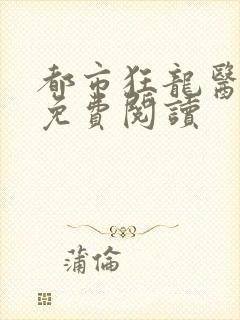 都市狂龍醫
免費閱讀
蒲倫